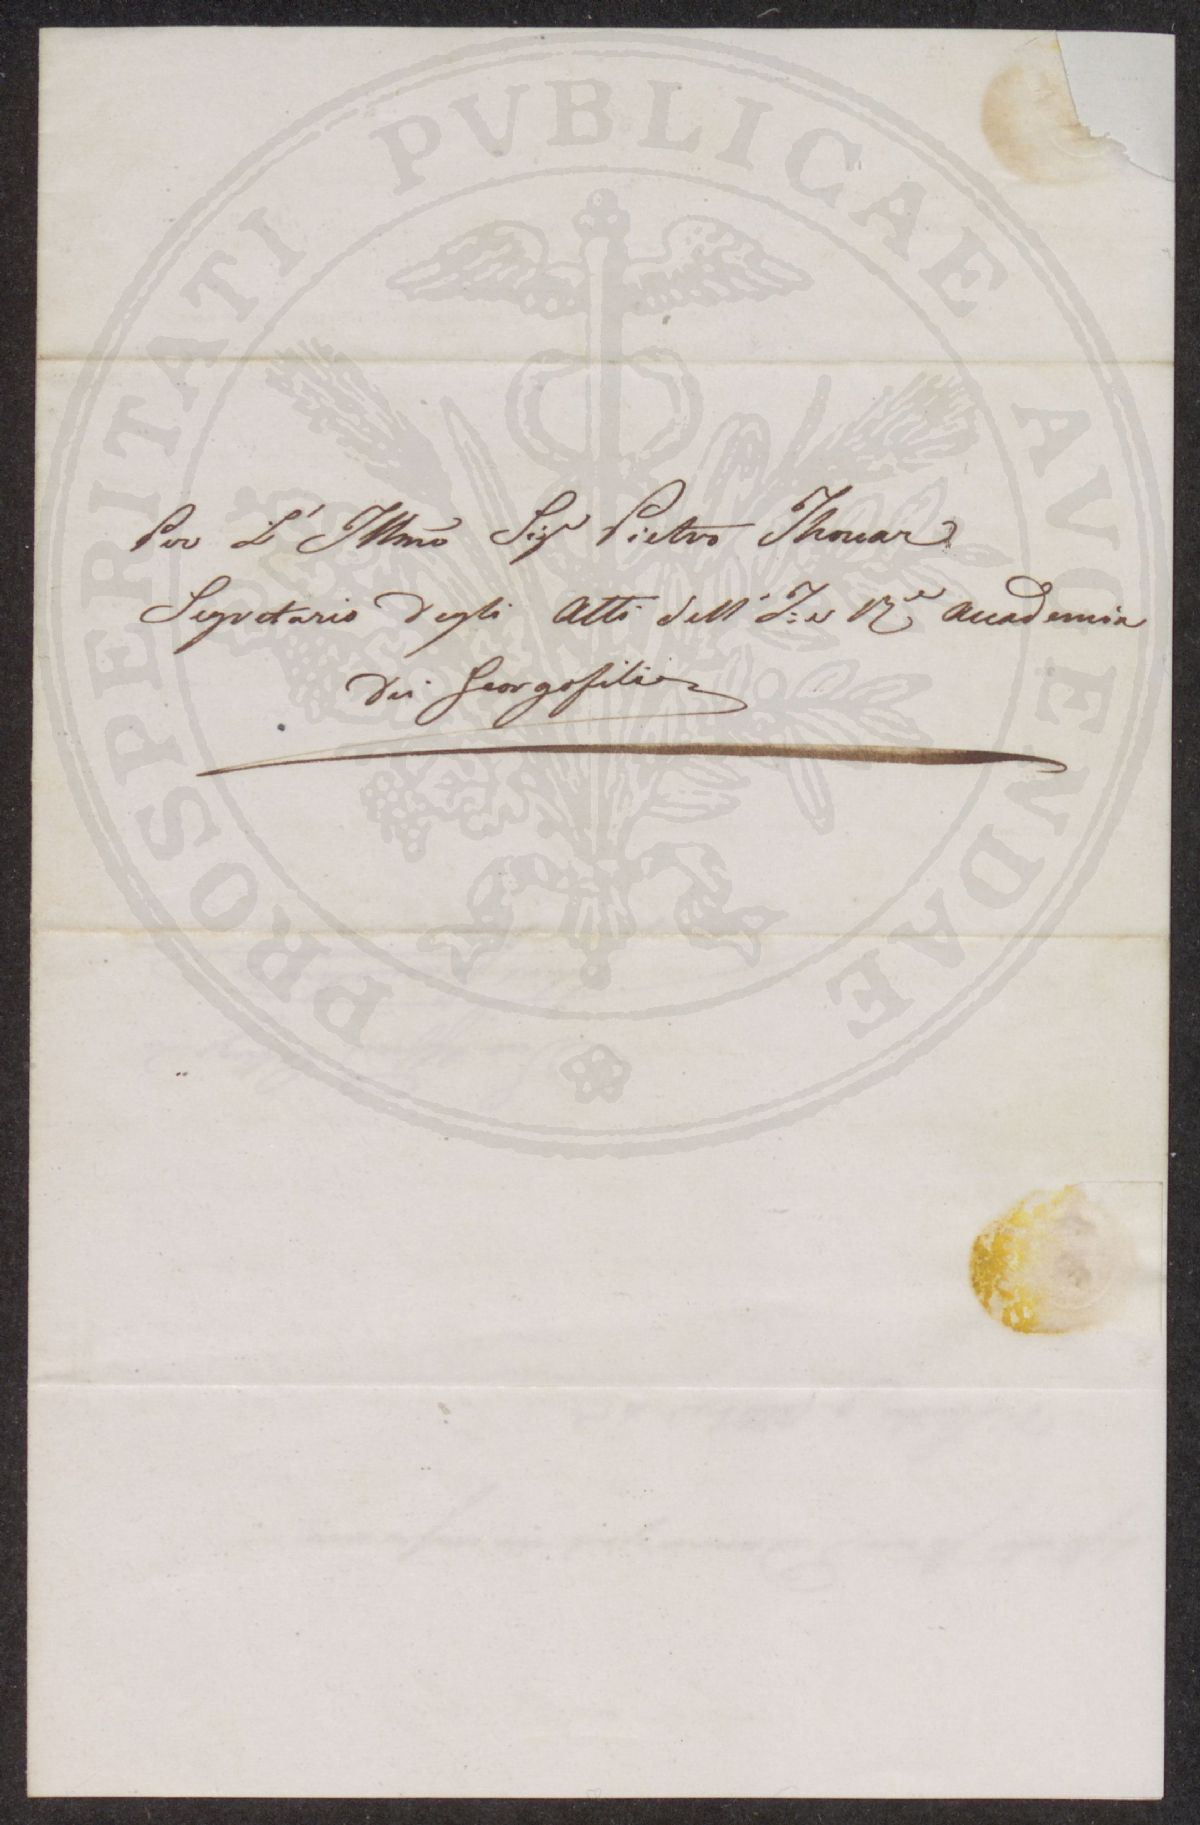 Per L' Illmo Sigr Pietro Thouar
Segretario degli Atti dell' I: e Re Accademia
dei Georgofili
PROSPERITATI PVBLICAE AVGENDAE